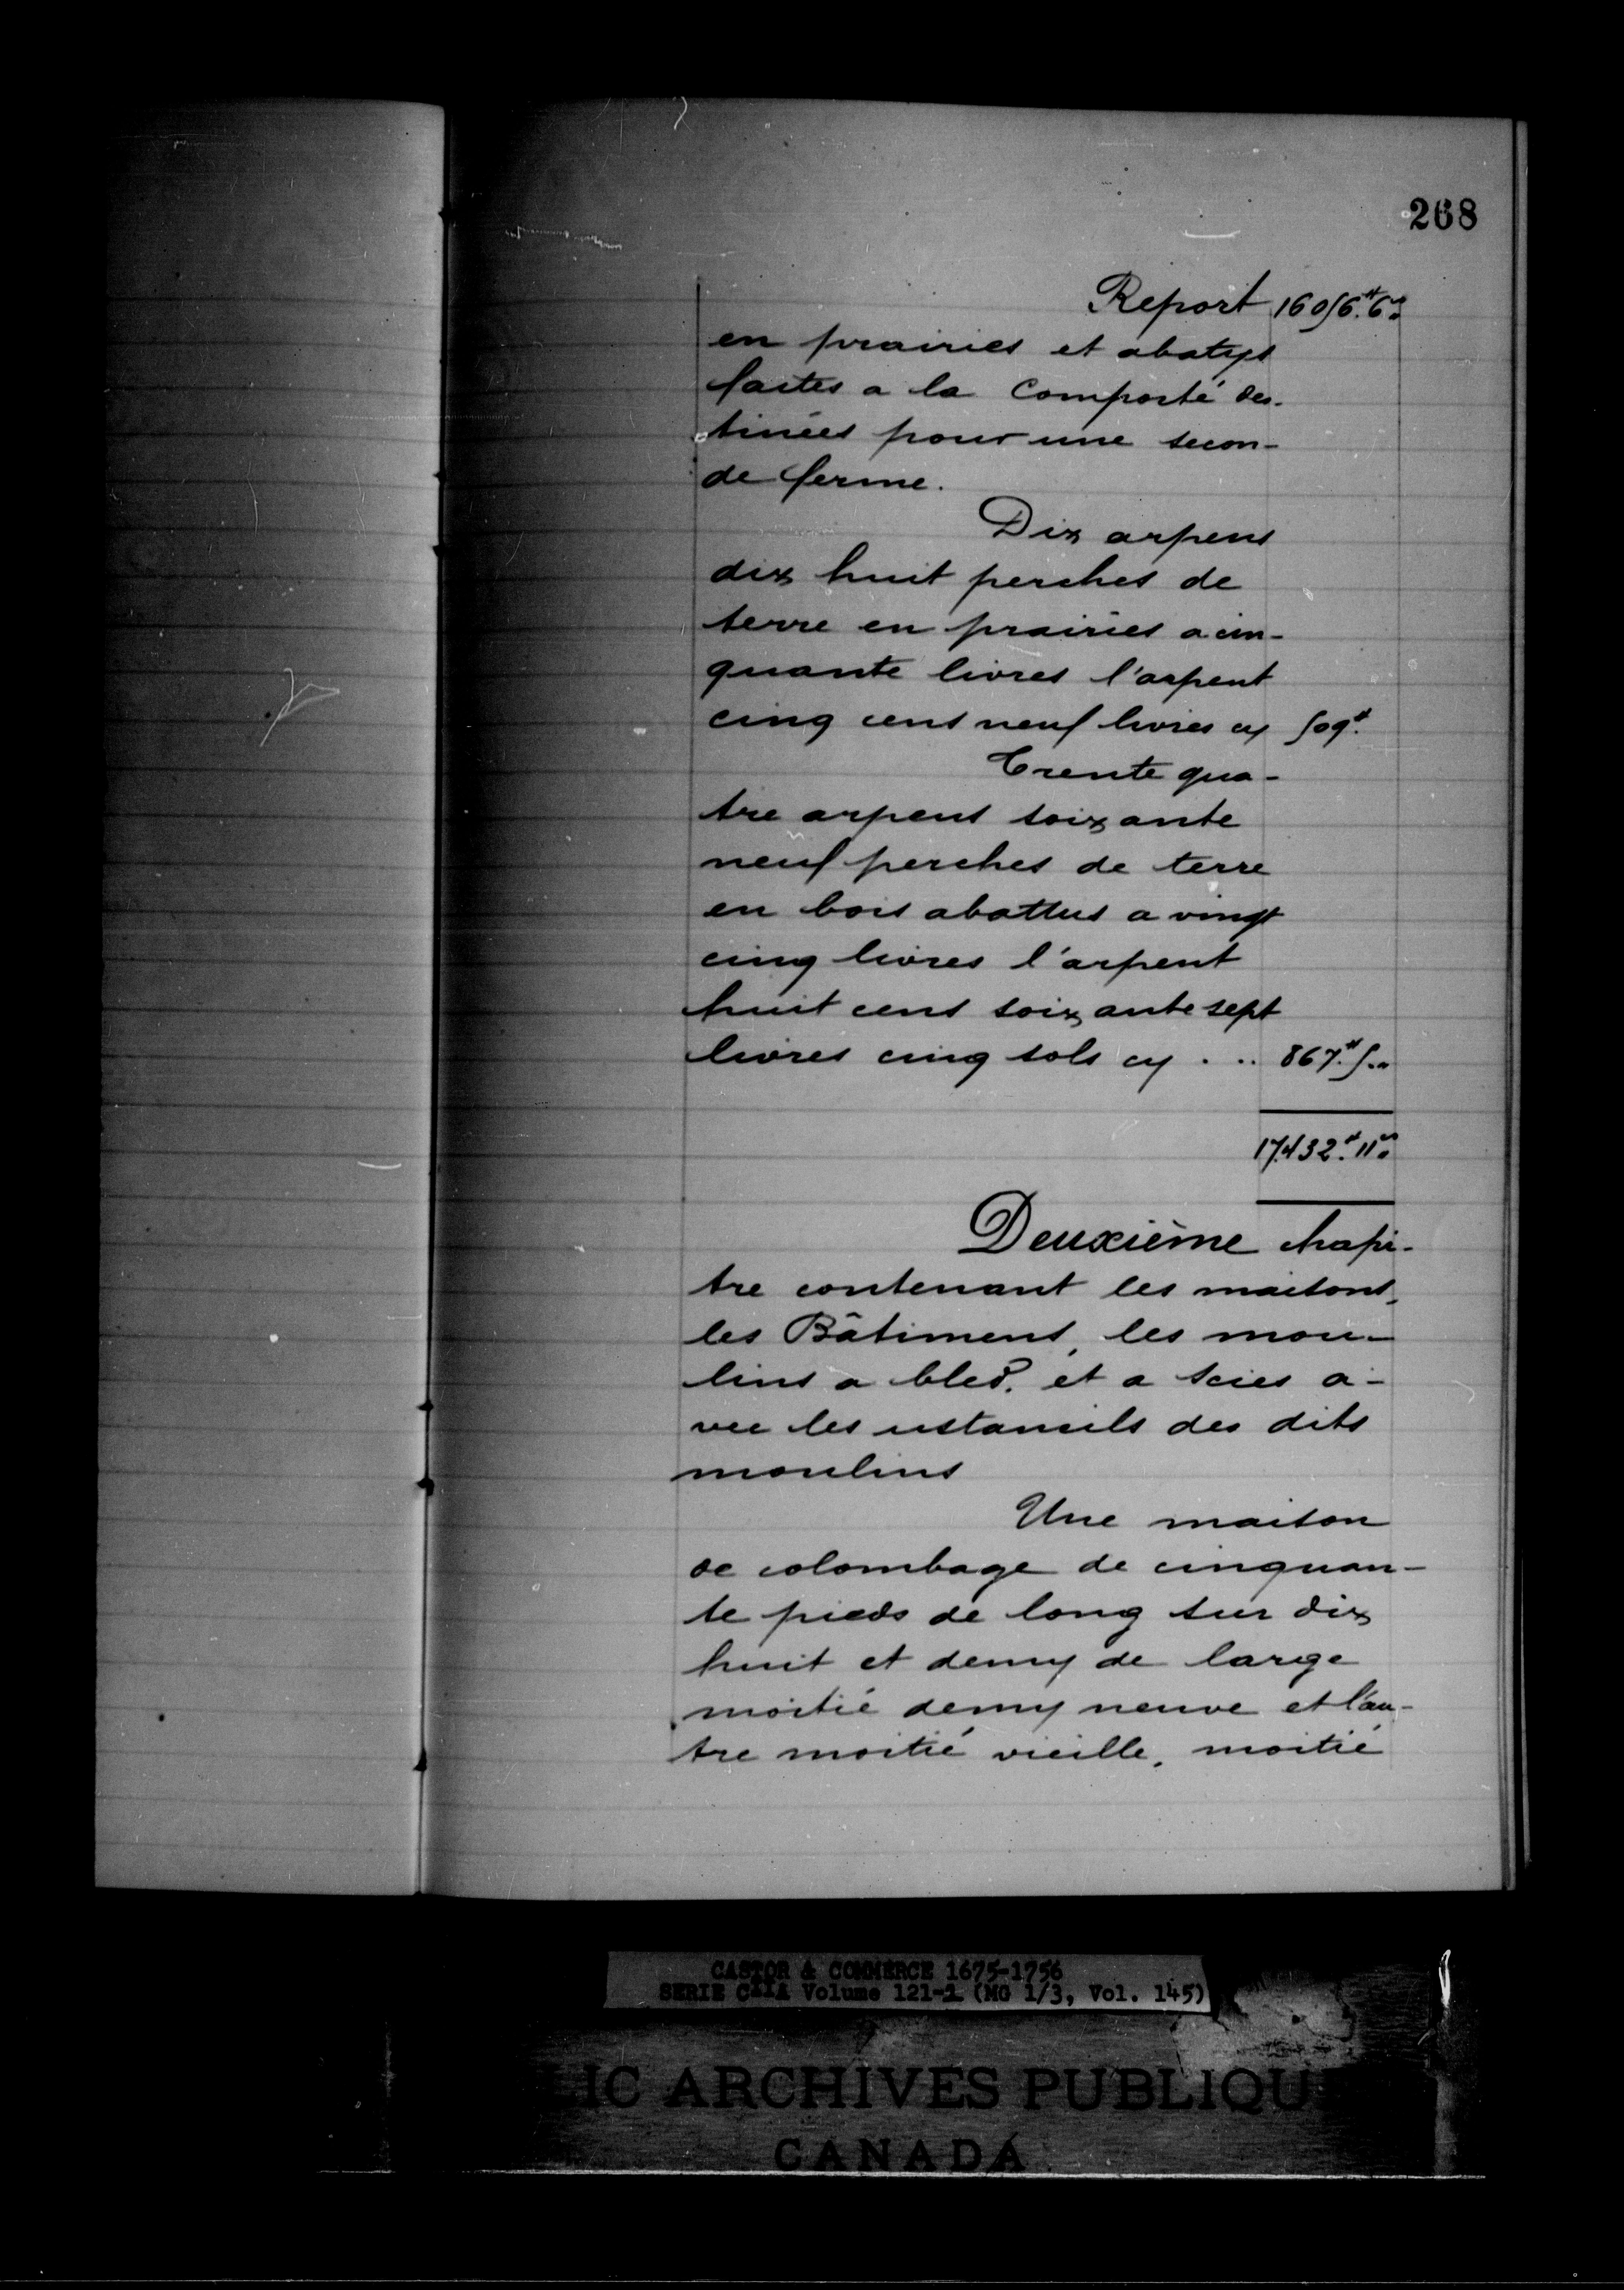 268
Report 16056.# 6.s
en prairies et abatys
faites a la Comporté des-
tinées pour une secon-
de ferme.
Dix arpens
dix huit perches de
terre en prairies a cin-
quante livres l'arpent
cinq cens neuf livres cy 509.#
Trente qua-
tre arpens soixante
neuf perches de terre
en bois abattus a vingt
cinq livres l'arpent
huit cens soixante sept
livres cinq sols cy . .. 867.# 5.s
17.432.# 11.s
Deuxième chapi-
tre contenant les maisons,
les Bâtimens, les mou-
lins a bled. et a scies a-
vec les ustancils des dits
moulins
Une maison
de colombage de cinquan-
te pieds de long sur dix
huit et demy de large
moitié demy neuve et l'au-
tre moitié vieille, moitié
CASTOR & COMMERCE 1675-1756
SERIE C11A Volume 121-1 (MG 1/3, Vol. 145)
LIC ARCHIVES PUBLIQU
CANADA